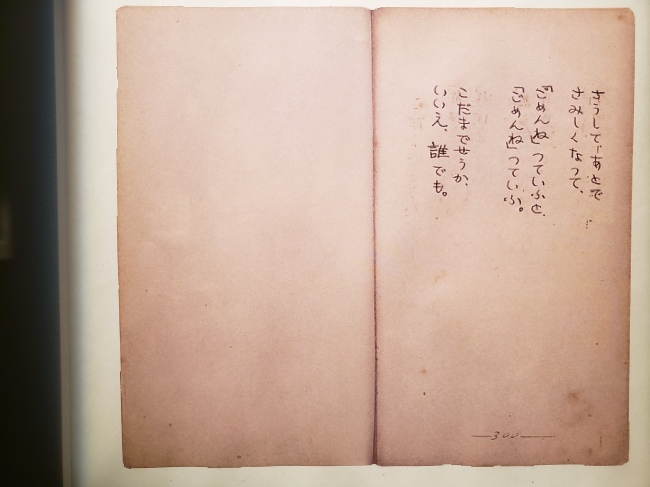 さうして、あとで
さみしくなつて、
「ごめんね」つていふと、
「ごめんね」つていふ。
こだまでせうか、
いいえ、誰でも。
300